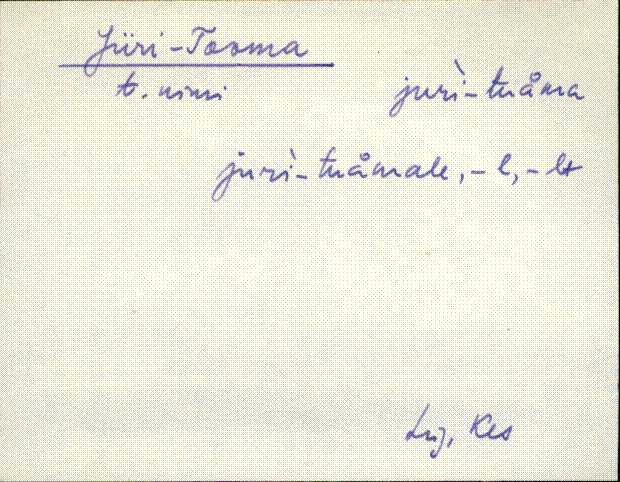 Jüri-Tooma
t. nimi juri̇̀-tuåma
juri̇̀-tuåmale, -l, -lt
Lüg, Kes